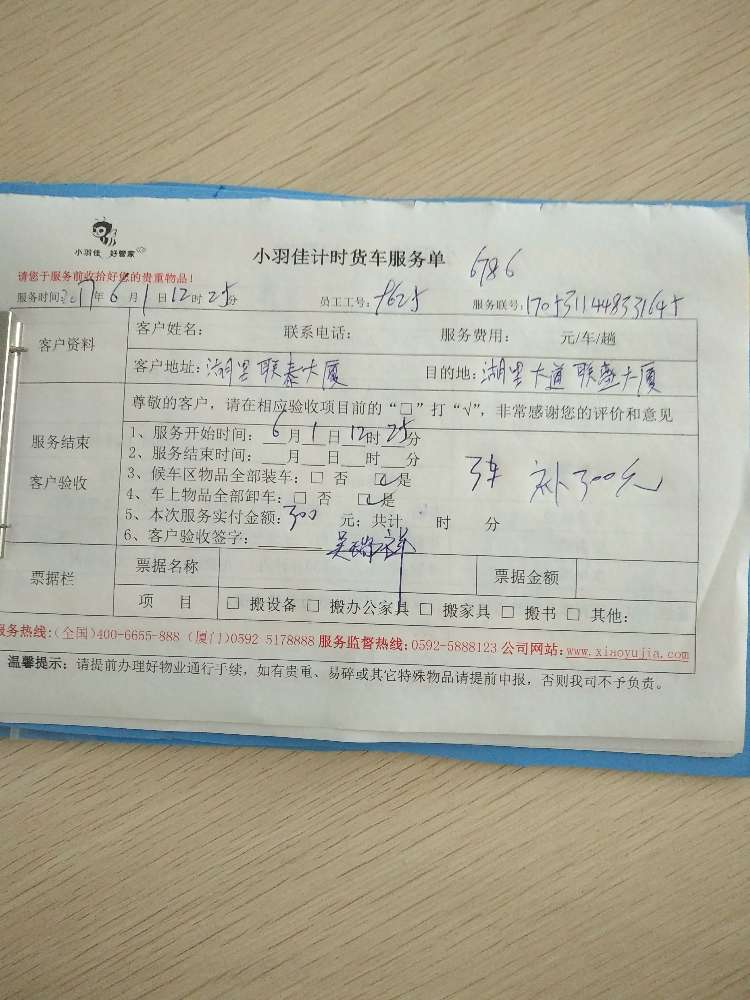 小羽佳 好管家
小羽佳计时货车服务单 6786
请您于服务前收拾好您的贵重物品！
服务时间:2017年6月1日12时25分 员工工号: 9625 服务联号:1705311448331645
客户资料
客户姓名: 联系电话: 服务费用: 元/车/趟
客户地址: 湖里联泰大厦 目的地: 湖里大道联盛大厦
服务结束
客户验收
尊敬的客户，请在相应验收项目前的“□”打“√”，非常感谢您的评价和意见
1、服务开始时间: 6月1日12时25分
2、服务结束时间: 月 日 时 分
3、候车区物品全部装车: □ 否 ☑是
4、车上物品全部卸车: □ 否 ☑是
5、本次服务实付金额: 300 元; 共计 时 分
6、客户验收签字:
3车 补300元
票据栏
票据名称 票据金额
项 目 □ 搬设备 □ 搬办公家具 □ 搬家具 □ 搬书 □ 其他:
服务热线:(全国)400-6655-888 (厦门)0592 5178888 服务监督热线: 0592-5888123 公司网站: www.xiaoyujia.com
温馨提示: 请提前办理好物业通行手续，如有贵重、易碎或其它特殊物品请提前申报，否则我司不予负责。